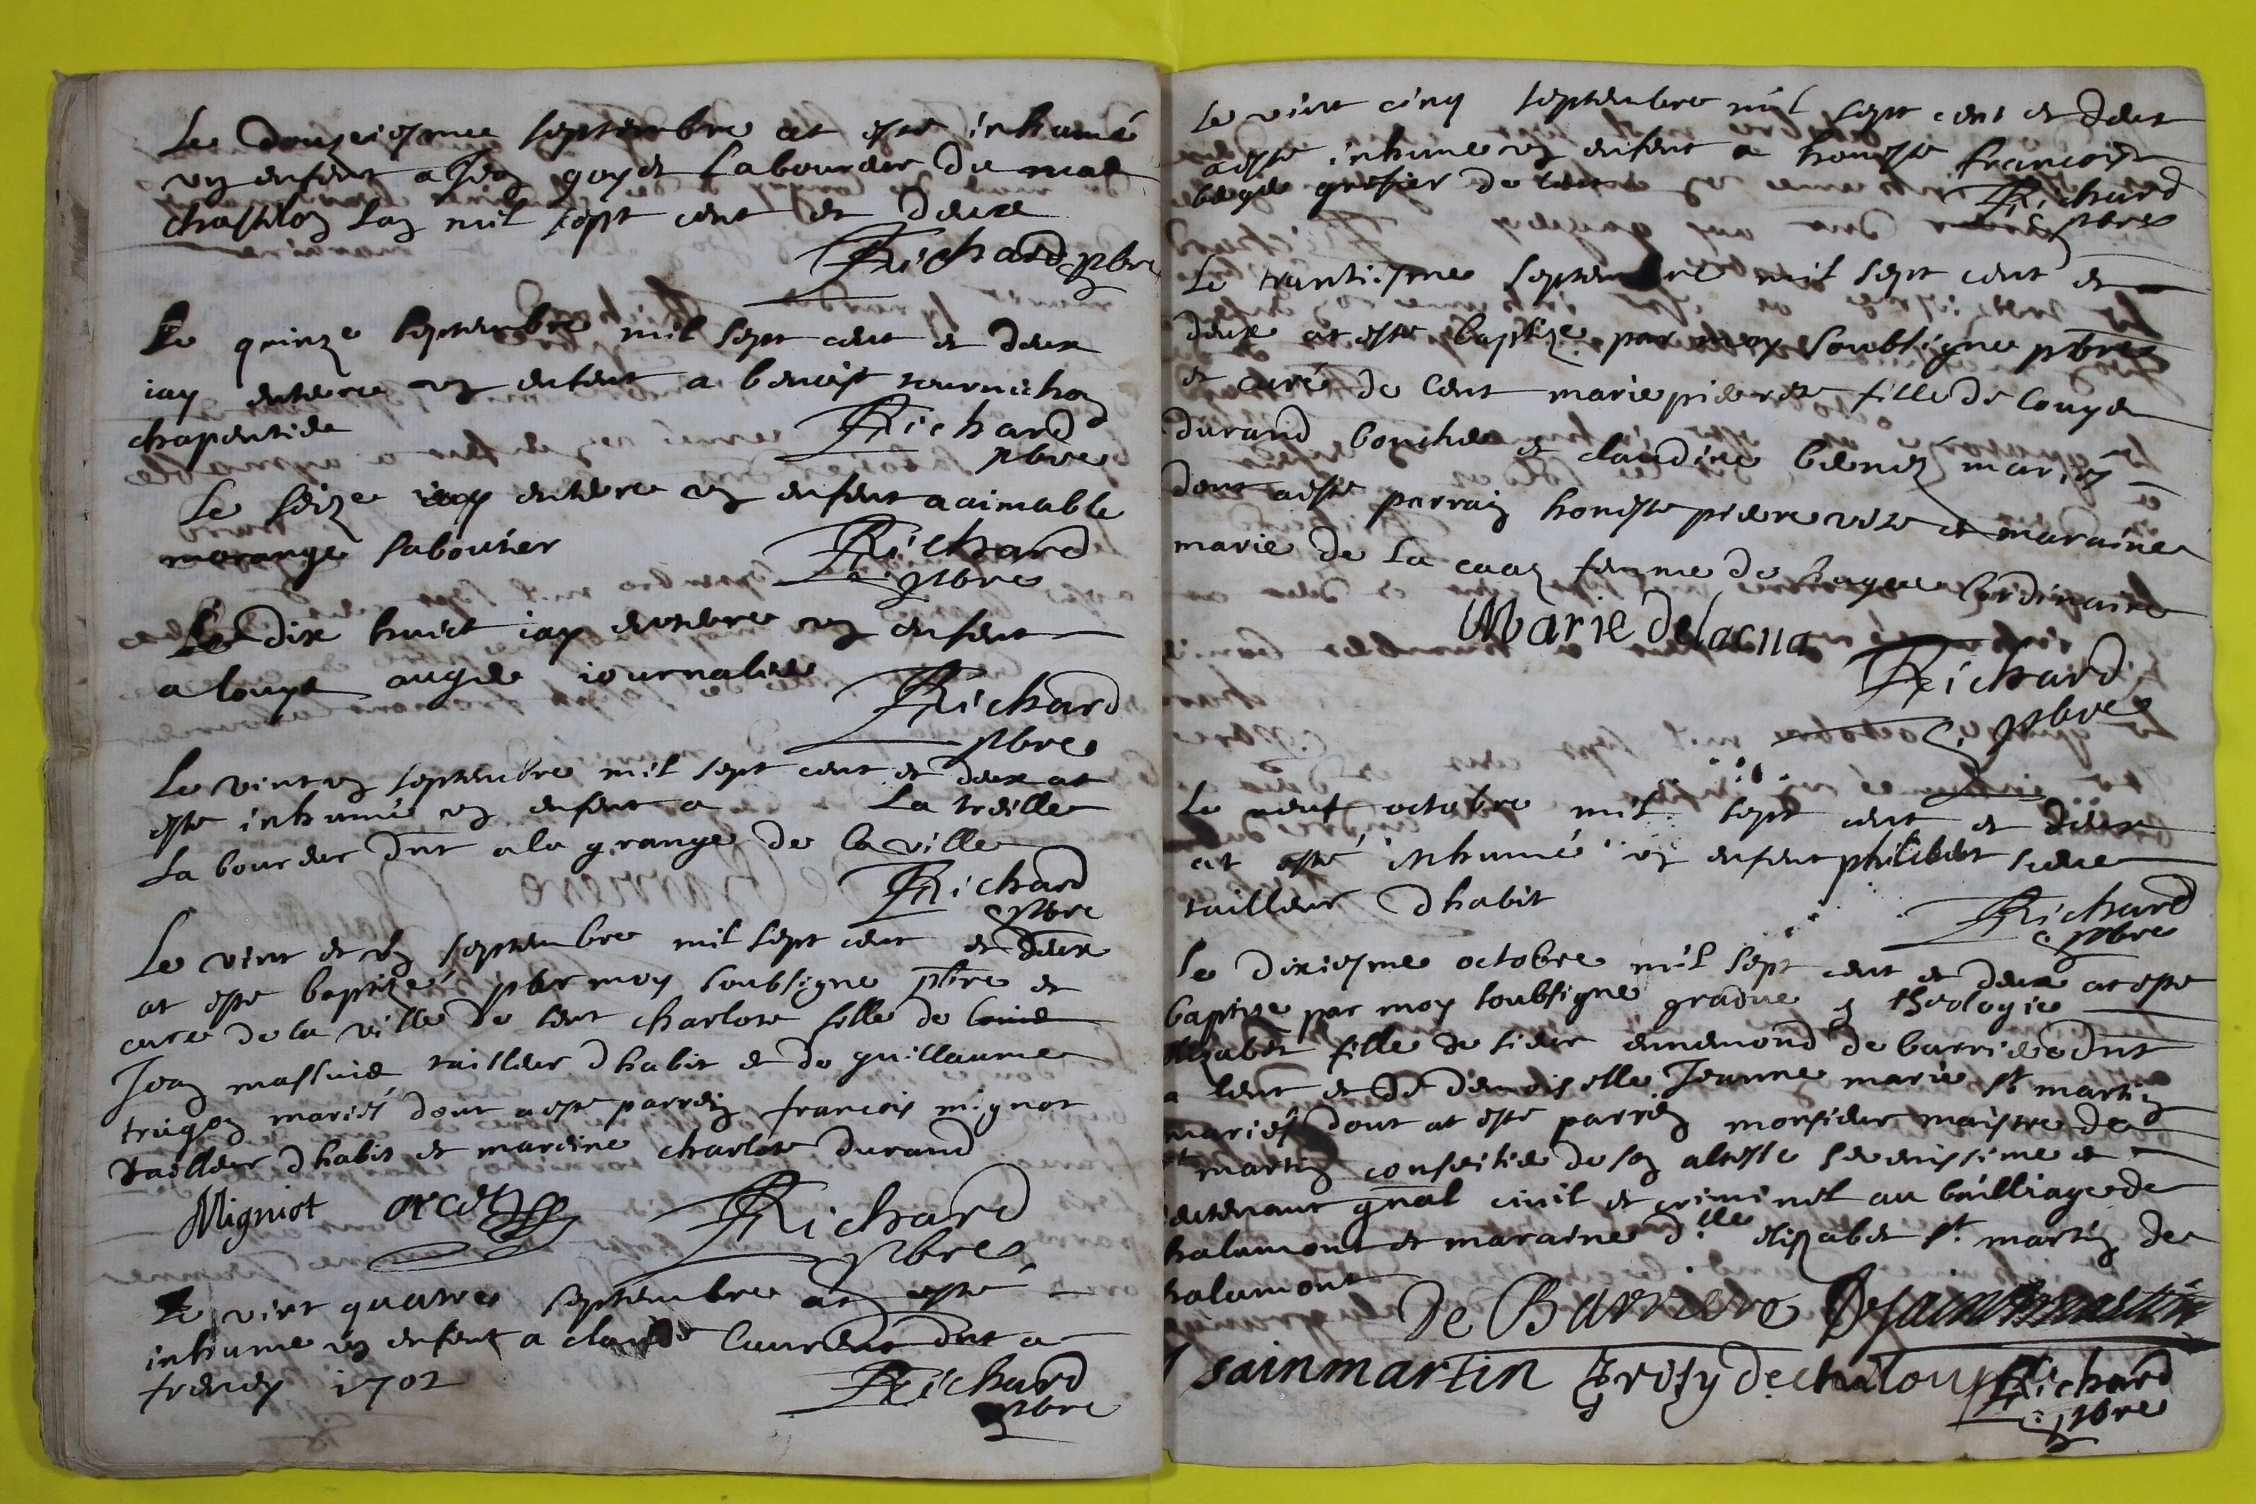 Le dousiesme septembre at este inhumé
un enfent a Jean goyet laboureur du mas
chastelon lan mil sept cent et deux
Richard pbre
Le quinze septembre mil sept cent et deux
iay enterre un enfent a benoist tournichon
chapentier
Richard
pbre
Le seize iay enterre un enfent a aimable
morange saboutier
Richard
pbre
Le dix huict iay enterre un enfent
a louys augier iournalier
Richard
pbre
Le vint un septembre mil sept cent et deux at
este inhumé un enfent a La treille
Laboureur dnt a la grange de la ville
Richard
pbre
Le vint et un septembre mil sept cent et deux
at este baptizé par moy soubsigne pbre et
cure de la ville de lent charlote fille de
Jean massuier tailleur dhabit et de guillaume
trugon mariés dont a este parrein francois mignot
tailleur dhabit et mareine charlote durand
Migniot orcet Richard
pbre
Le vint quatre septembre at esté
inhume un enfent a claude laurent dnt a
freney 1702
Richard
pbre
Le vint cinq septembre mil sept cent et deux
a este inhume un enfent a honeste francois
begé grefier de lent
Richard
pbre
Le trantiesme septembre mil sept cent et
deux at este baptize par moy soubsigne pbre
et curé de lent marie pierrete fille de louys
durand boucher et claudine mariés
dont a este parrain honeste pierre vite et maraine
marie de la cua femme de lordinaire
Marie delacua
Richard
pbre
Le neuf octobre mil sept cent et deux
at esté inhumé un enfent philibert
tailleur dhabit
Richard
pbre
Le dixiesme octobre mil sept cent et deux at este
baptize par moy soubsigne gradue en theologie
elizabet fille de sieur ennemond de barriere dnt
a lent et de demoiselle Jeanne marie st martin
mariés dont at este parrein monsieur maistre de
st martin conseilier de son altesse serenissime et
lieutenant gnal civil et criminel au bailliage de
halamont et maraine dlle elizabet st martin de
halamont
De Barriere Desainctmartin
J sainmartin Richard
pbre